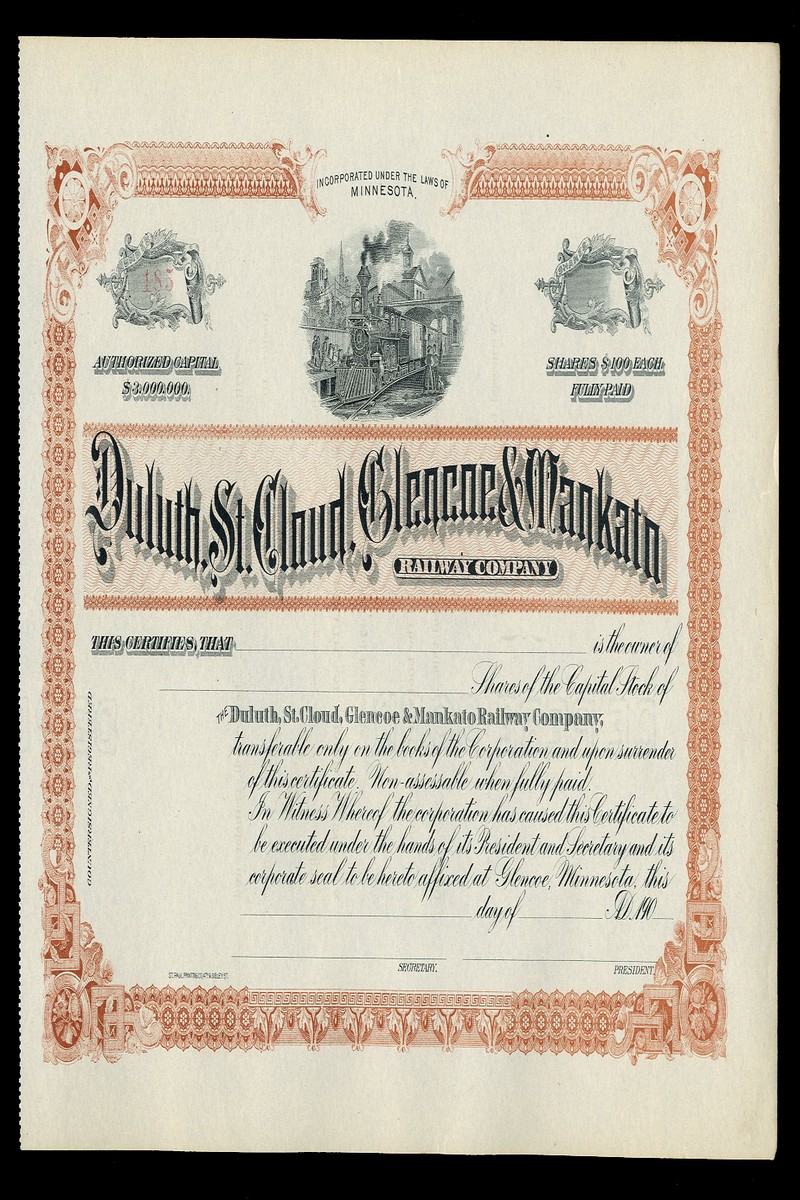 INCORPORATED UNDER THE LAWS OF
MINNESOTA.
185
SHARES
AUTHORIZED CAPITAL
$3,000,000.
SHARES $100 EACH
FULLY PAID
Duluth, St. Cloud, Glencoe & Mankato
RAILWAY COMPANY
THIS CERTIFIES, THAT is the owner of
Shares of the Capital Stock of
THE Duluth, St. Cloud, Glencoe & Mankato Railway Company,
transferable only on the books of the Corporation and upon surrender
of this certificate. Non-assessable when fully paid.
In Witness Whereof the corporation has caused this Certificate to
be executed under the hands of its President and Secretary and its
corporate seal to be hereto affixed at Glencoe, Minnesota, this
day of A.D. 190
COUNTERSIGNED AND REGISTERED
SECRETARY.
PRESIDENT.
ST. PAUL PRINTING CO.